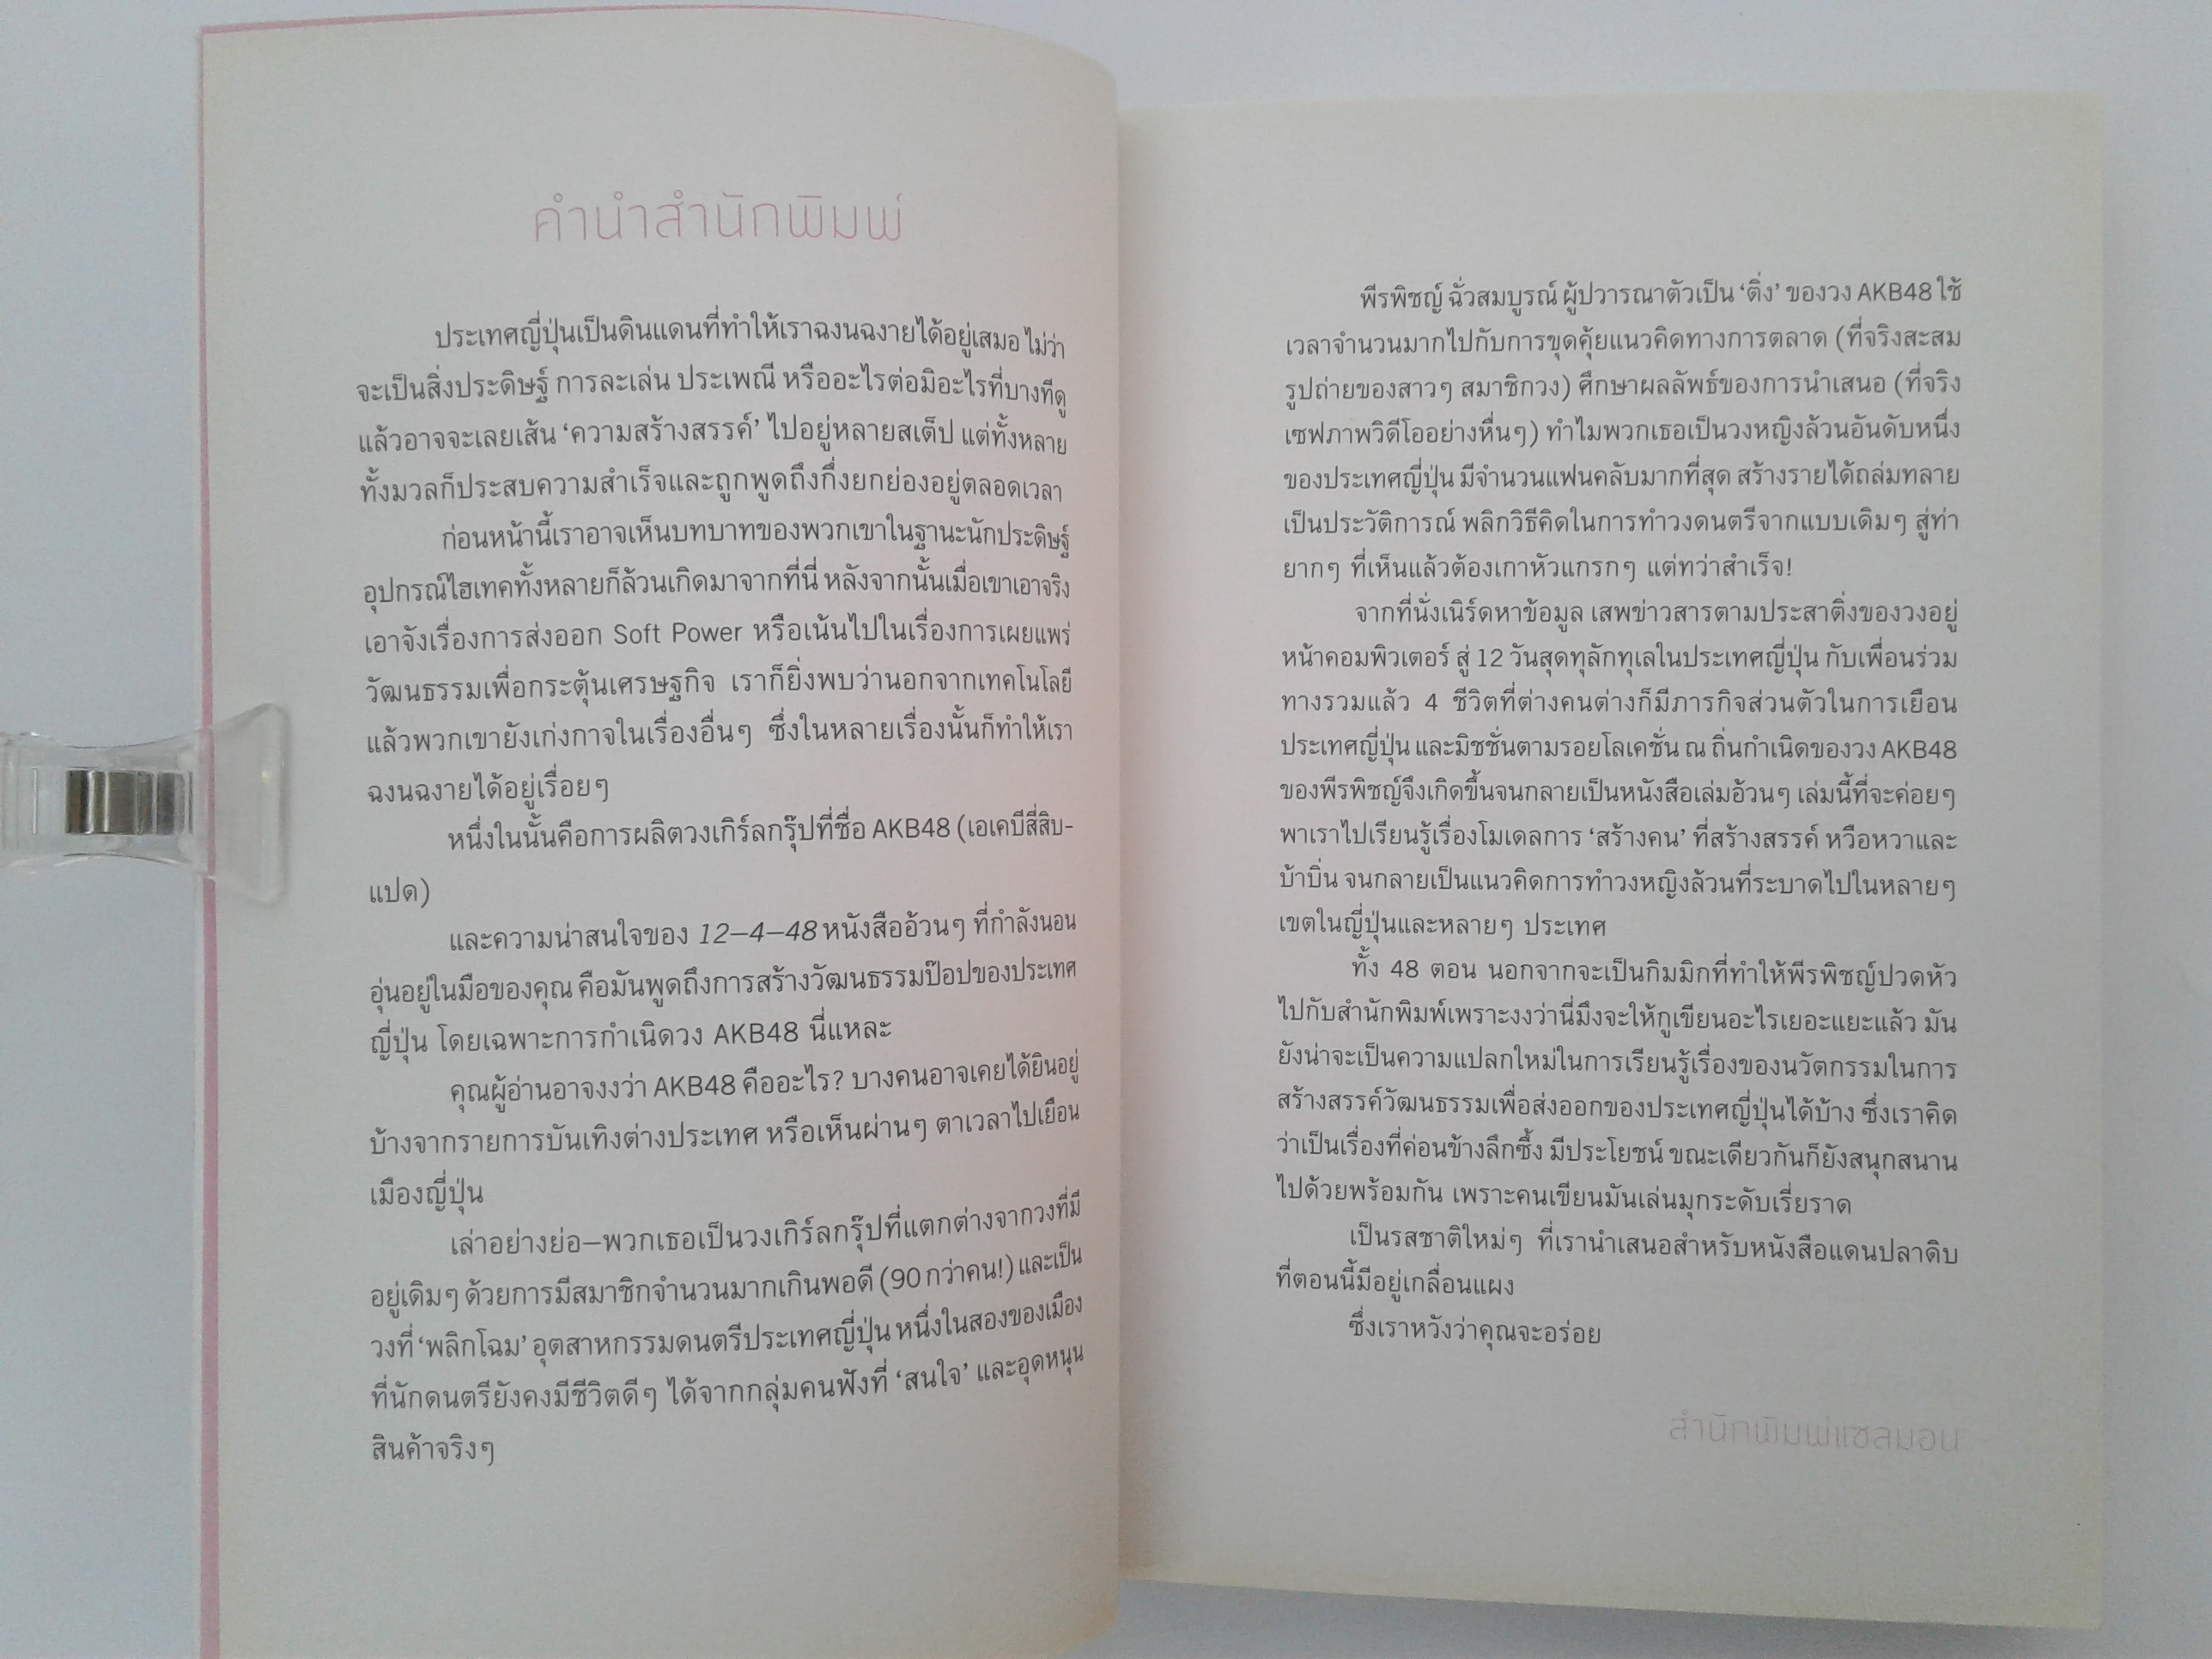 คำนำสำนักพิมพ์
ประเทศญี่ปุ่นเป็นดินแดนที่ทำให้เราฉงนฉงายได้อยู่เสมอ ไม่ว่า
จะเป็นสิ่งประดิษฐ์ การละเล่น ประเพณี หรืออะไรต่อมิอะไรที่บางทีดู
แล้วอาจจะเลยเส้น ‘ความสร้างสรรค์’ ไปอยู่หลายสเต็ป แต่ทั้งหลาย
ทั้งมวลก็ประสบความสำเร็จและถูกพูดถึงกึ่งยกย่องอยู่ตลอดเวลา
ก่อนหน้านี้เราอาจเห็นบทบาทของพวกเขาในฐานะนักประดิษฐ์
อุปกรณ์ไฮเทคทั้งหลายก็ล้วนเกิดมาจากที่นี่ หลังจากนั้นเมื่อเขาเอาจริง
เอาจังเรื่องการส่งออก Soft Power หรือเน้นไปในเรื่องการเผยแพร่
วัฒนธรรมเพื่อกระตุ้นเศรษฐกิจ เราก็ยิ่งพบว่านอกจากเทคโนโลยี
แล้วพวกเขายังเก่งกาจในเรื่องอื่นๆ ซึ่งในหลายเรื่องนั้นก็ทำให้เรา
ฉงนฉงายได้อยู่เรื่อยๆ
หนึ่งในนั้นคือการผลิตวงเกิร์ลกรุ๊ปที่ชื่อ AKB48 (เอเคบีสี่สิบ-
แปด)
และความน่าสนใจของ 12–4–48 หนังสืออ้วนๆ ที่กำลังนอน
อุ่นอยู่ในมือของคุณ คือมันพูดถึงการสร้างวัฒนธรรมป๊อปของประเทศ
ญี่ปุ่น โดยเฉพาะการกำเนิดวง AKB48 นี่แหละ
คุณผู้อ่านอาจงงว่า AKB48 คืออะไร? บางคนอาจเคยได้ยินอยู่
บ้างจากรายการบันเทิงต่างประเทศ หรือเห็นผ่านๆ ตาเวลาไปเยือน
เมืองญี่ปุ่น
เล่าอย่างย่อ—พวกเธอเป็นวงเกิร์ลกรุ๊ปที่แตกต่างจากวงที่มี
อยู่เดิมๆ ด้วยการมีสมาชิกจำนวนมากเกินพอดี (90 กว่าคน!) และเป็น
วงที่ ‘พลิกโฉม’ อุตสาหกรรมดนตรีประเทศญี่ปุ่น หนึ่งในสองของเมือง
ที่นักดนตรียังคงมีชีวิตดีๆ ได้จากกลุ่มคนฟังที่ ‘สนใจ’ และอุดหนุน
สินค้าจริงๆ
พีรพิชญ์ ฉั่วสมบูรณ์ ผู้ปวารณาตัวเป็น ‘ติ่ง’ ของวง AKB48 ใช้
เวลาจำนวนมากไปกับการขุดคุ้ยแนวคิดทางการตลาด (ที่จริงสะสม
รูปถ่ายของสาวๆ สมาชิกวง) ศึกษาผลลัพธ์ของการนำเสนอ (ที่จริง
เซฟภาพวิดีโออย่างหื่นๆ) ทำไมพวกเธอเป็นวงหญิงล้วนอันดับหนึ่ง
ของประเทศญี่ปุ่น มีจำนวนแฟนคลับมากที่สุด สร้างรายได้ถล่มทลาย
เป็นประวัติการณ์ พลิกวิธีคิดในการทำวงดนตรีจากแบบเดิมๆ สู่ท่า
ยากๆ ที่เห็นแล้วต้องเกาหัวแกรกๆ แต่ทว่าสำเร็จ!
จากที่นั่งเนิร์ดหาข้อมูล เสพข่าวสารตามประสาติ่งของวงอยู่
หน้าคอมพิวเตอร์ สู่ 12 วันสุดทุลักทุเลในประเทศญี่ปุ่น กับเพื่อนร่วม
ทางรวมแล้ว 4 ชีวิตที่ต่างคนต่างก็มีภารกิจส่วนตัวในการเยือน
ประเทศญี่ปุ่น และมิชชั่นตามรอยโลเคชั่น ณ ถิ่นกำเนิดของวง AKB48
ของพีรพิชญ์จึงเกิดขึ้นจนกลายเป็นหนังสือเล่มอ้วนๆ เล่มนี้ที่จะค่อยๆ
พาเราไปเรียนรู้เรื่องโมเดลการ ‘สร้างคน’ ที่สร้างสรรค์ หวือหวาและ
บ้าบิ่น จนกลายเป็นแนวคิดการทำวงหญิงล้วนที่ระบาดไปในหลายๆ
เขตในญี่ปุ่นและหลายๆ ประเทศ
ทั้ง 48 ตอน นอกจากจะเป็นกิมมิกที่ทำให้พีรพิชญ์ปวดหัว
ไปกับสำนักพิมพ์เพราะงงว่านี่มึงจะให้กูเขียนอะไรเยอะแยะแล้ว มัน
ยังน่าจะเป็นความแปลกใหม่ในการเรียนรู้เรื่องของนวัตกรรมในการ
สร้างสรรค์วัฒนธรรมเพื่อส่งออกของประเทศญี่ปุ่นได้บ้าง ซึ่งเราคิด
ว่าเป็นเรื่องที่ค่อนข้างลึกซึ้ง มีประโยชน์ ขณะเดียวกันก็ยังสนุกสนาน
ไปด้วยพร้อมกัน เพราะคนเขียนมันเล่นมุกระดับเรี่ยราด
เป็นรสชาติใหม่ๆ ที่เรานำเสนอสำหรับหนังสือแดนปลาดิบ
ที่ตอนนี้มีอยู่เกลื่อนแผง
ซึ่งเราหวังว่าคุณจะอร่อย
สำนักพิมพ์แซลมอน